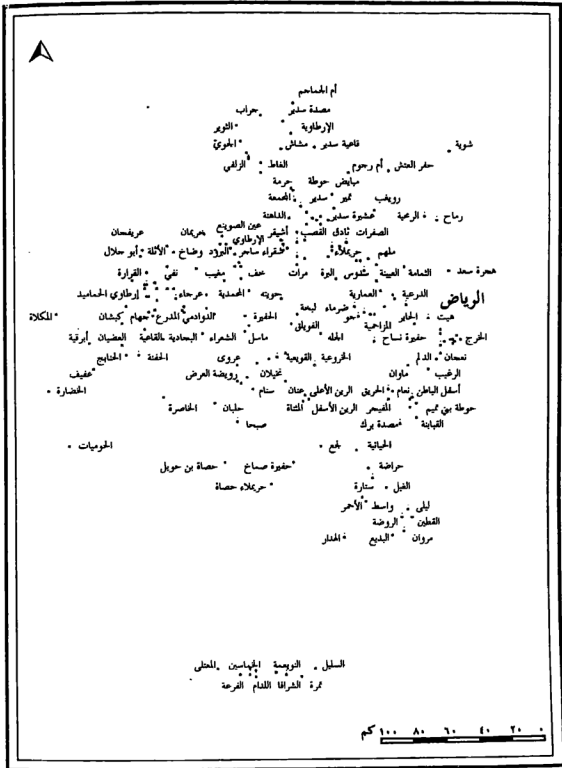 أم الجماجم
مصدة سدير جراب
الإرطاوية الثوير
شوية قاعية سدير مشاش
حفر العتش أم رجوم الغاط الزلفي
مبايض حوطة حرمة
رويغب تمير سدير المجمعة
رماح الرمحية عشيرة سدير الداهنة
الصفرات ثادق القصب أشيقر عين الصوينع عريفجان
الإرطاوي
ملهم حريملاء شقراء ساجر البرود وضاخ الأثلة أبو جلال
هجرة سعد الثمامة العيينة سدوس البرة مرات خف مغيب نفي القرارة
الرياض الدرعية العمارية المحمدية عرجاء إرطاوي الحماميد
هيت الحاير ضرماء لبخة الحفيرة الدوادمي المدرع كبشان المكلاة
المزاحمية الفويلق
الخرج حفيرة نساح الجله ماسل الشعراء البجادية القاعية العضيان أبرقية
نعجان الدلم الخروعية القويعية عروى الحفنة الخنابج
الرغيب ماوان نخيلان رويضة العرض عفيف
أسفل الباطن نعام الحريق الرين الأعلى عنان سنام الخضارة
حوطة بني تميم المفيجر الرين الأسفل المثناة حلبان الخاصرة
القبابنة مصدة برك صبحا
الحيانية
حراضة حفيرة صماخ حصاة بن حويل
الغيل ستارة حريملاء حصاة
ليلى واسط الأحمر
القطين الروضة
مروان البديع الهدار
السليل النويعمة الخماسين المعتلى
تمرة الشرافا اللدام الفرعة
٠ ٢٠ ٤٠ ٦٠ ٨٠ ١٠٠ كم